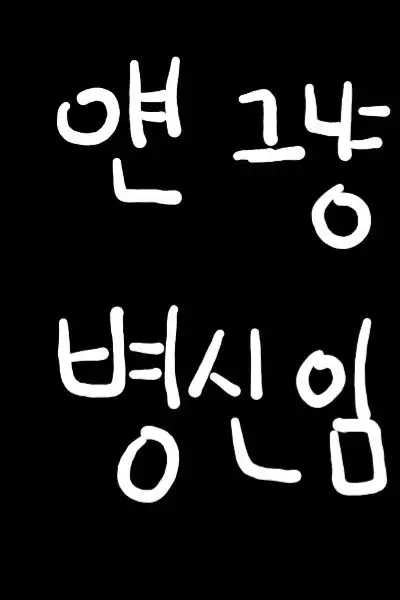 얜 그냥
병신임